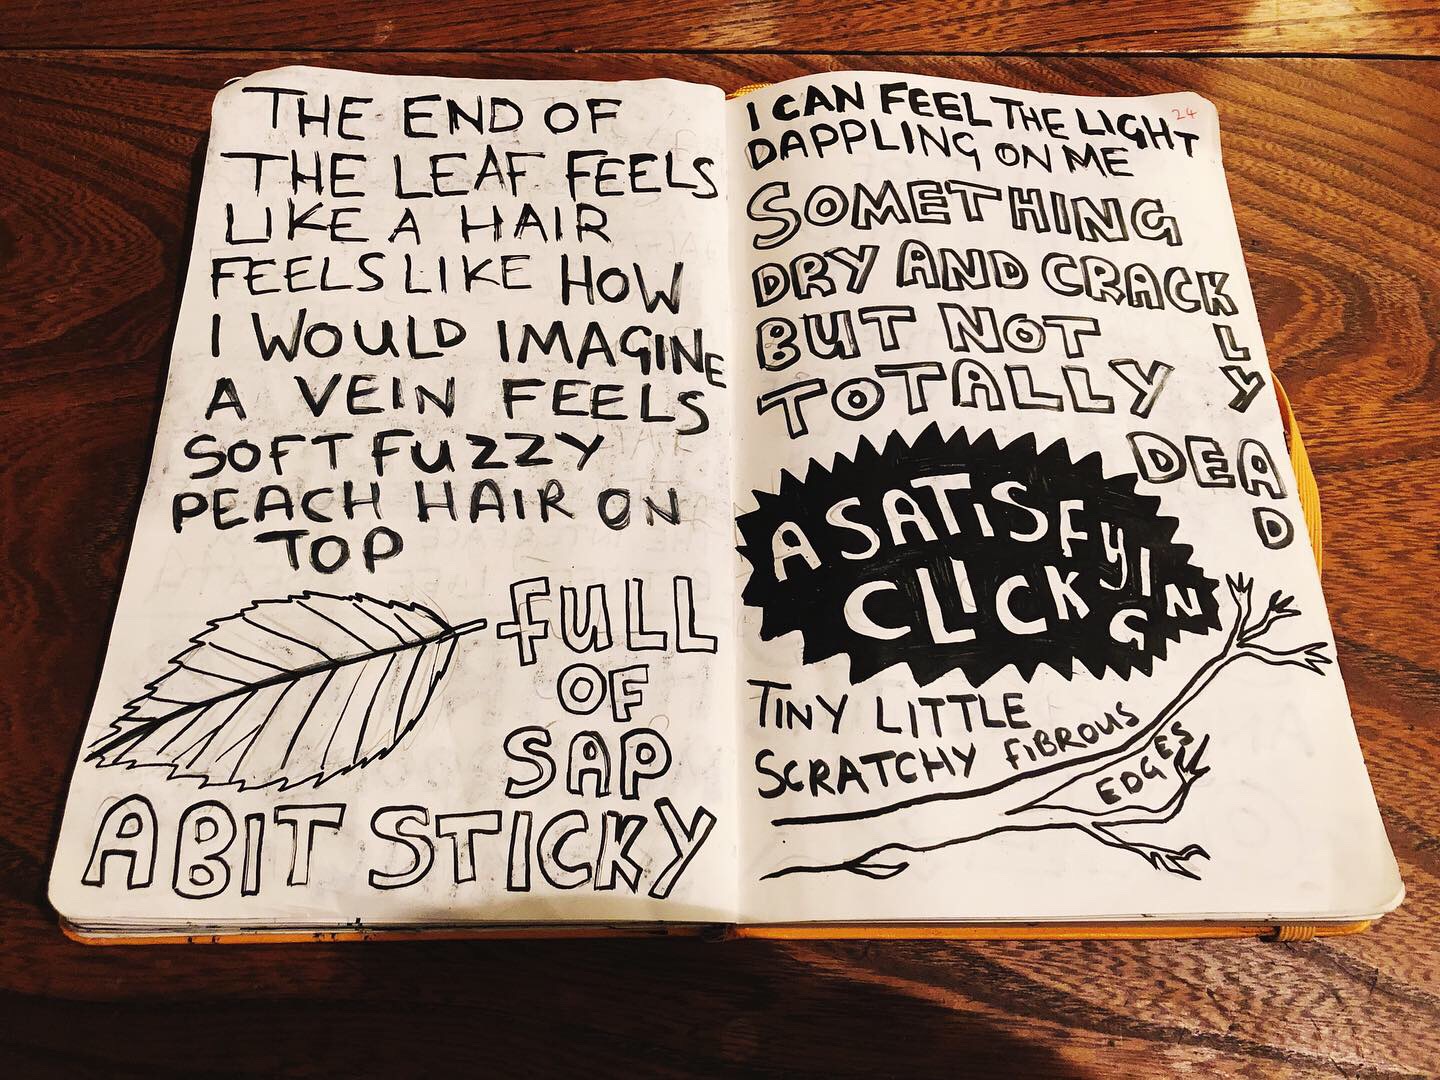 THE END OF
THE LEAF FEELS
LIKE A HAIR
FEELS LIKE HOW
I WOULD IMAGINE
A VEIN FEELS
SOFT FUZZY
PEACH HAIR ON
TOP
FULL
OF
SAP
A BIT STICKY
24
I CAN FEEL THE LIGHT
DAPPLING ON ME
SOMETHING
DRY AND CRACKLY
BUT NOT
TOTALLY
DEAD
A SATISFYING
CLICK
TINY LITTLE
SCRATCHY FIBROUS
EDGES